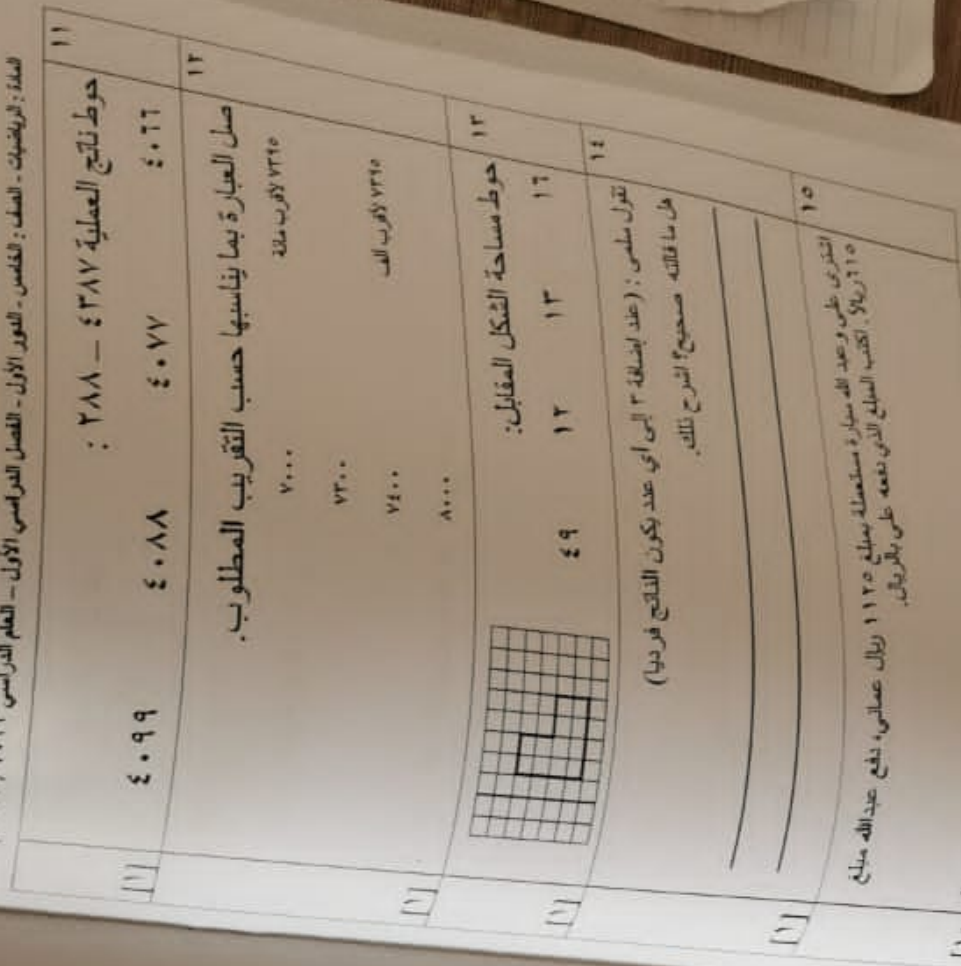 المادة : الرياضيات - الصف : الخامس - الدور الأول - الفصل الدراسي الأول – العام الدراسي
١١
حوط ناتج العملية ٤٣٨٧ – ٢٨٨ :
٤٠٦٦ ٤٠٧٧ ٤٠٨٨ ٤٠٩٩
[١]
١٢
صل العبارة بما يناسبها حسب التقريب المطلوب.
٧٠٠٠
٧٣٩٥ لأقرب مائة
٧٣٠٠
٧٤٠٠
٧٣٩٥ لأقرب ألف
٨٠٠٠
[٢]
١٣
حوط مساحة الشكل المقابل:
١٦ ١٣ ١٢ ٤٩
[١]
١٤
تقول سلمى : (عند إضافة ٣ إلى أي عدد يكون الناتج فرديا)
هل ما قالته صحيح؟ اشرح ذلك.
[١]
١٥
اشترى علي وعبد الله سيارة مستعملة بمبلغ ١١٢٥ ريال عماني، دفع عبدالله مبلغ
٦١٥ ريالاً. اكتب المبلغ الذي دفعه علي بالريال.